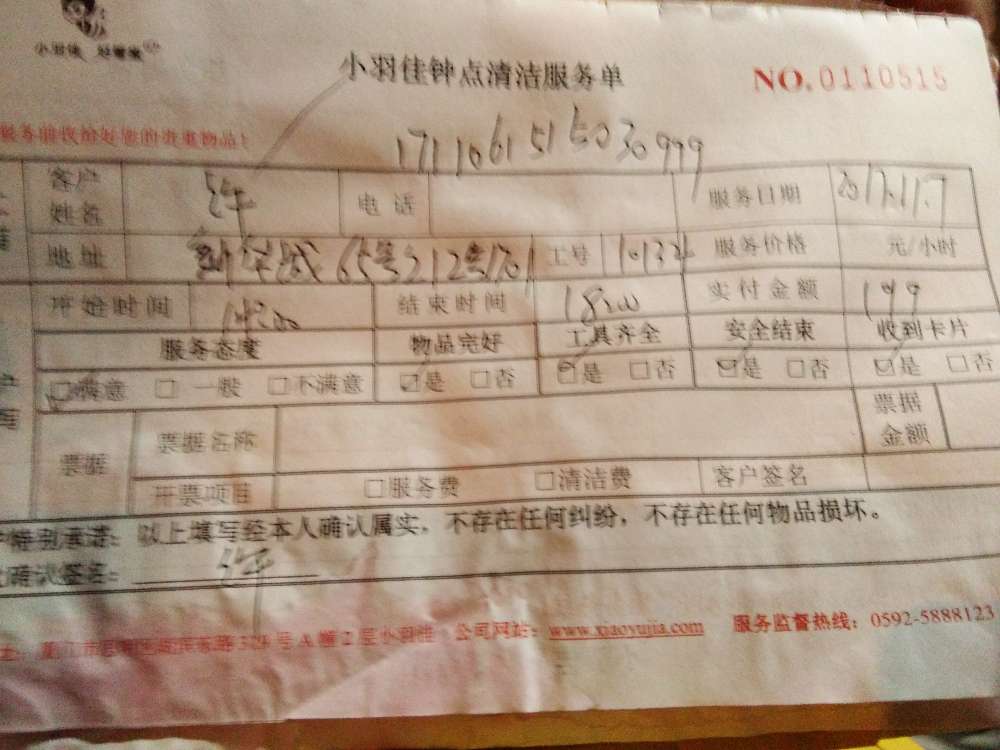 小羽佳 好管家
小羽佳钟点清洁服务单
NO.0110515
服务前收拾好您的贵重物品！
1711061515030999
客户姓名 电话 服务日期 2017.11.7
地址 新华城65号212室1701 工号 101326 服务价格 元/小时
开始时间 14:00 结束时间 18:00 实付金额 199
服务态度 物品完好 工具齐全 安全结束 收到卡片
☑满意 □一般 □不满意 ☑是 □否 ☑是 □否 ☑是 □否 ☑是 □否
票据 票据名称 票据金额
开票项目 □服务费 □清洁费 客户签名
特别承诺：以上填写经本人确认属实，不存在任何纠纷，不存在任何物品损坏。
确认签名：
329号A幢2层小羽佳 公司网站：www.xiaoyujia.com 服务监督热线：0592-5888123